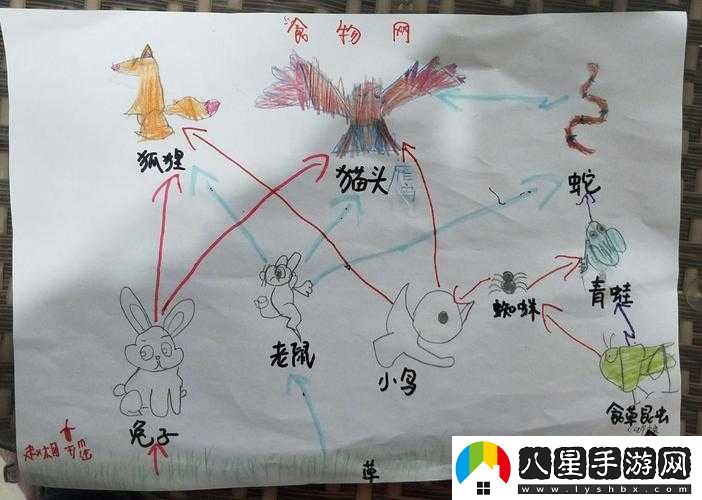 食物网
狐狸
猫头鹰
蛇
老鼠
小鸟
蜘蛛
青蛙
兔子
食草昆虫
草
八星手游网
www.lyshbx.com